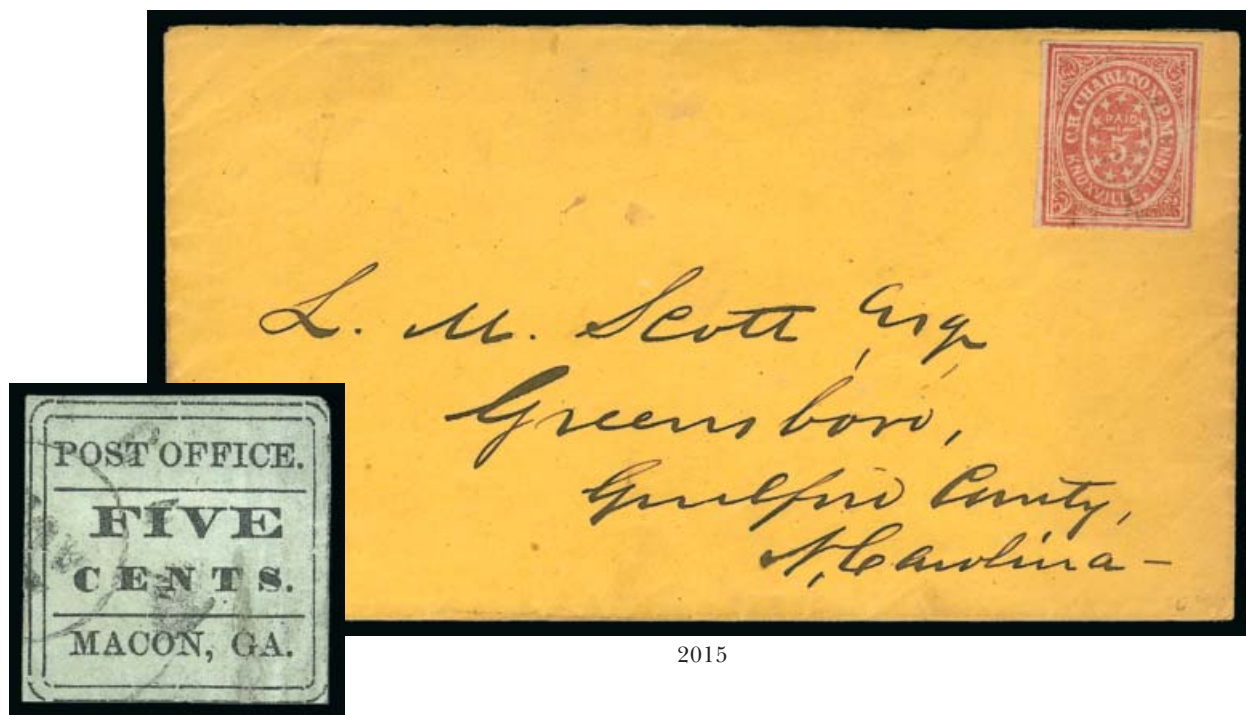 C.H. CHARLTON, P.M.
PAID
5
KNOXVILLE, TENN:
L. M. Scott, Esq,
Greensboro,
Guilford County,
N. Carolina —
POST OFFICE.
FIVE
CENTS.
MACON, GA.
2015